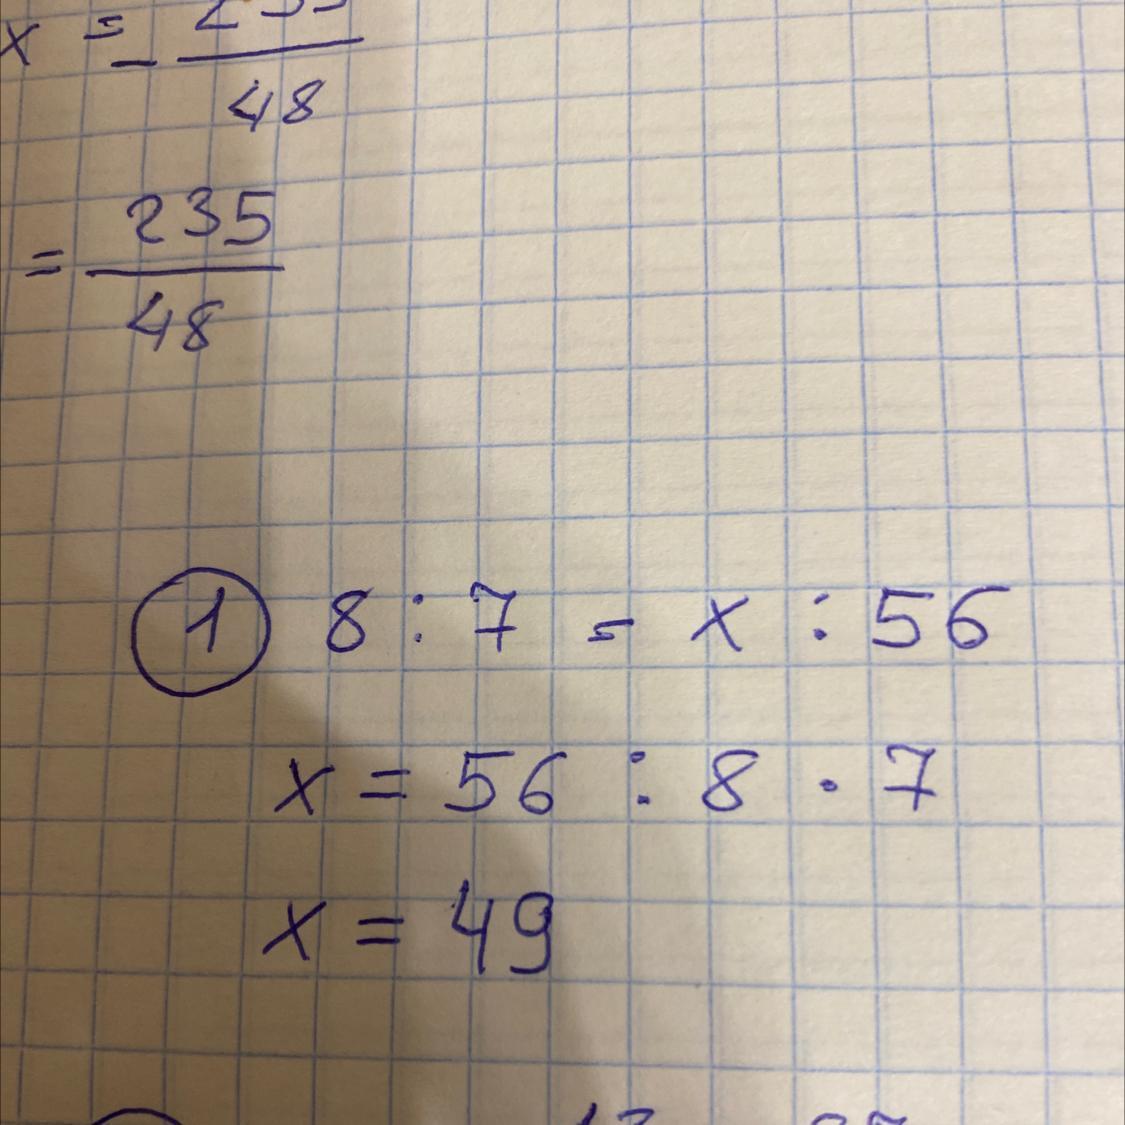 x = -
48
= 235
48
1 8 : 7 = x : 56
x = 56 : 8 · 7
x = 49